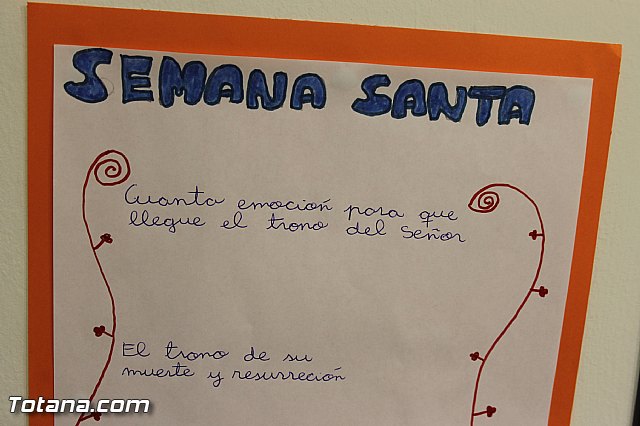 SEMANA SANTA
Cuanta emoción para que
llegue el trono del Señor
El trono de su
muerte y resurreción
Totana.com